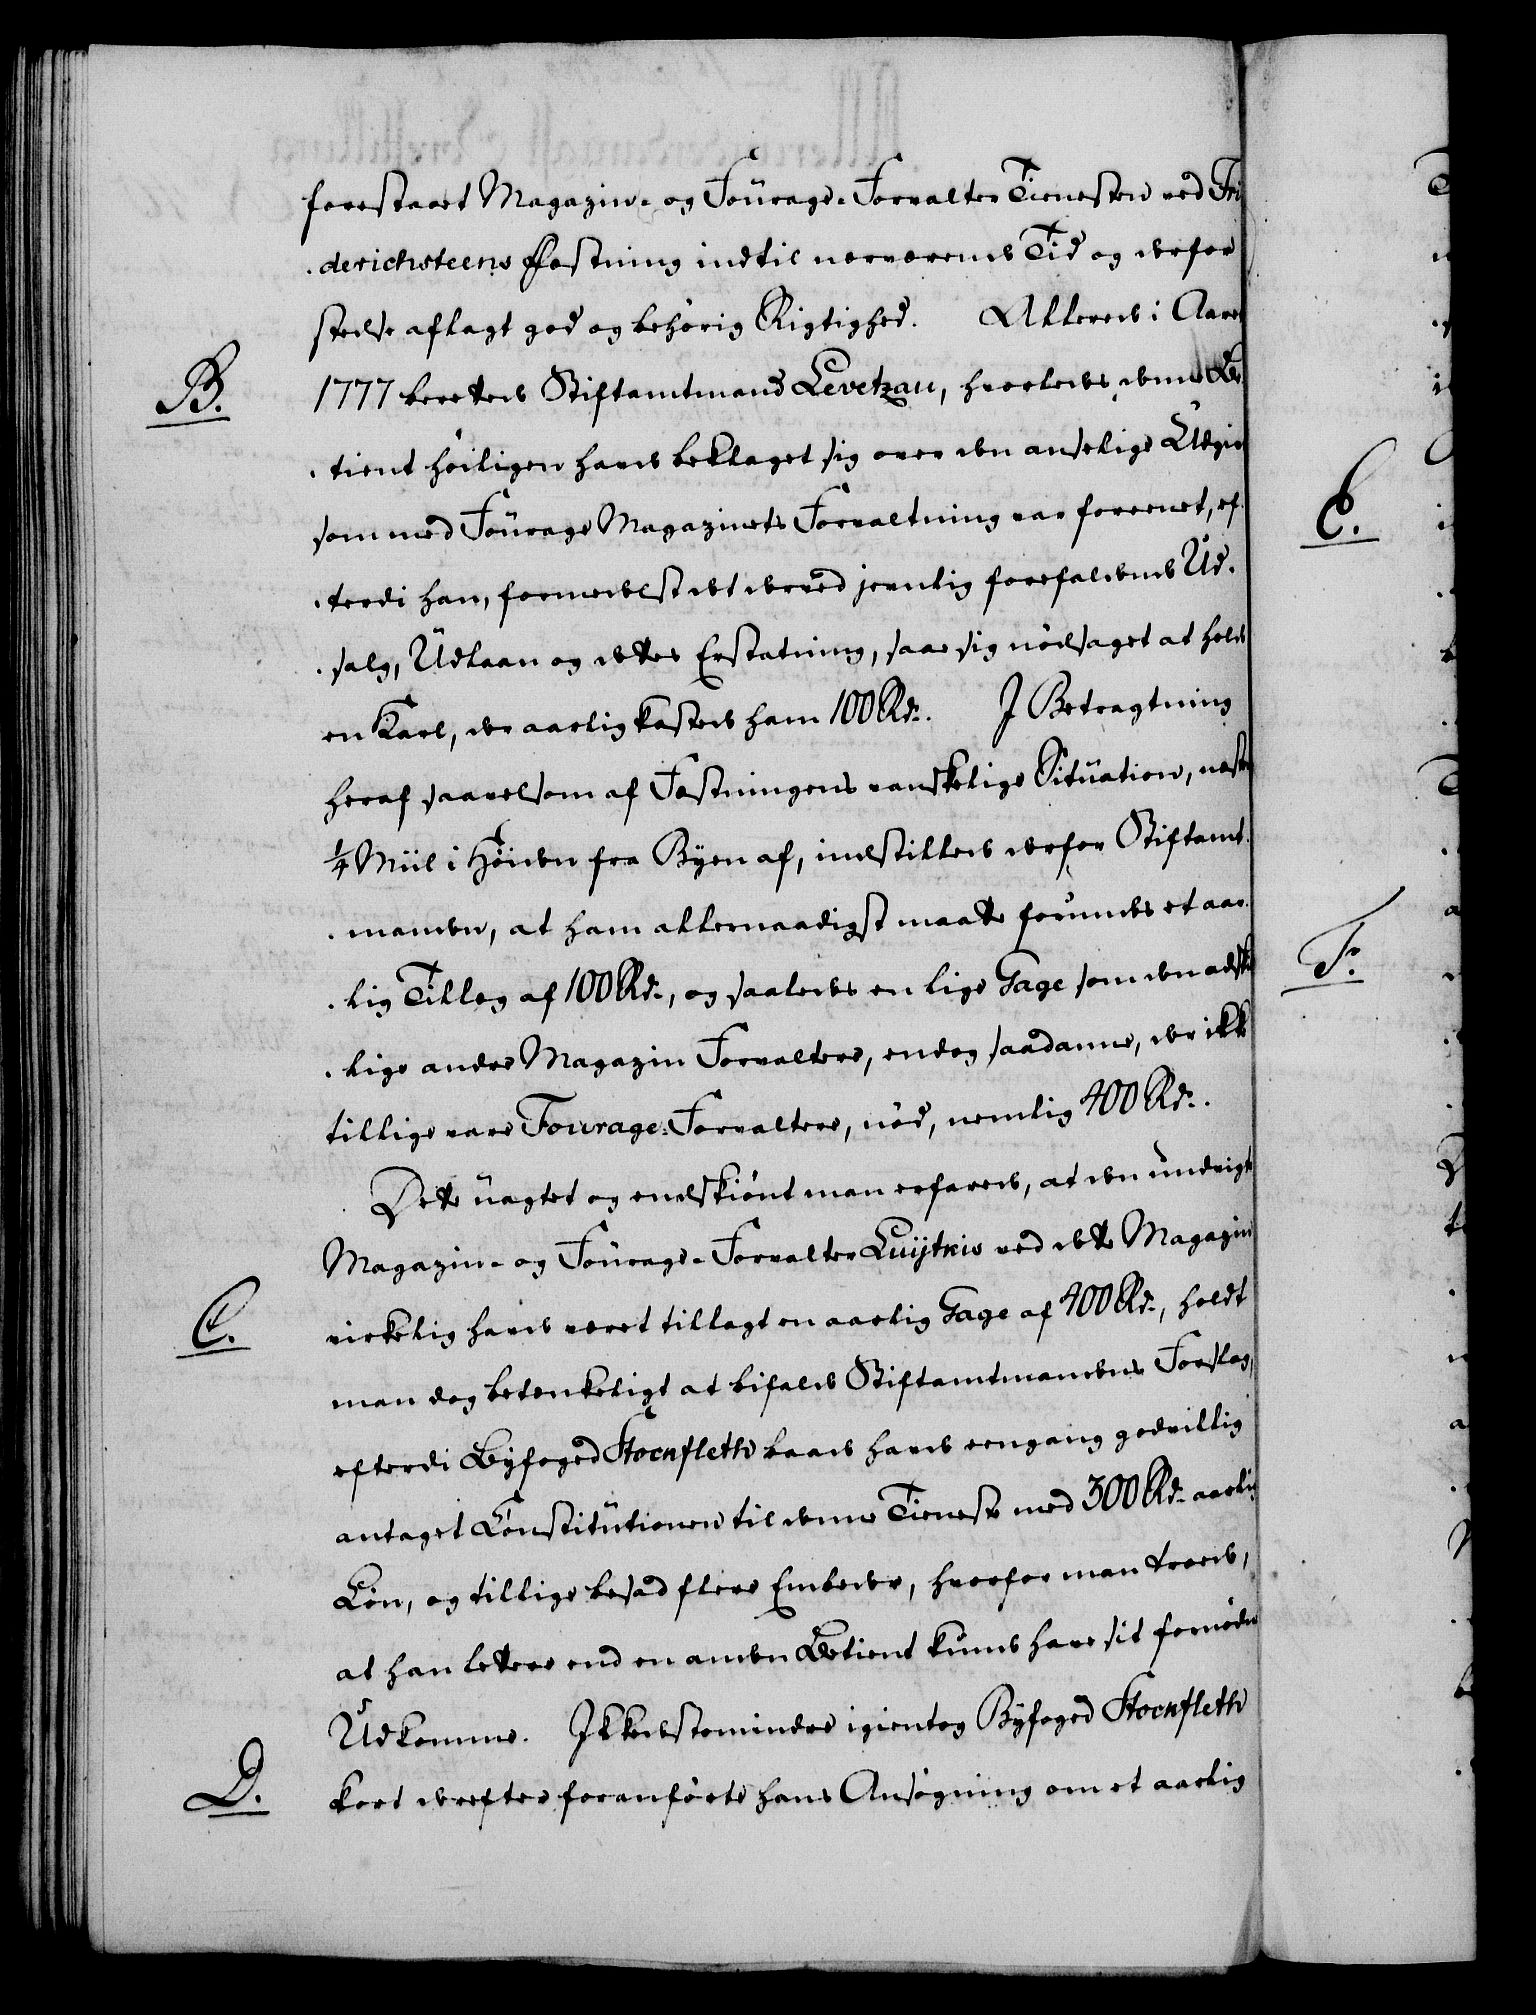 forestaaet Magazin- og Fourage-Forvalter Tienesten ved Fri
-derichsteens Fæstning indtil nærværende Tid og derfor
stedse aflagt god og behørig Rigtighed. Allerede i Aaret
B.
1777 berettede Stiftamtmand Levetzau, hvorledes denne Be-
-tient høiligen havde beklaget sig over den anselige Udgivt
som med Fourage Magazinets Forvaltning var foreenet, ef-
-terdi han, formedelst det derved jevnlig forefaldende Ud-
-salg, Udlaan og dettes Erstatning, saae sig nødsaget at holde
en Karl, der aarlig kostede ham 100 Rd. I Betragtning
heraf saavelsom af Fæstningens vanskelige Situation, næsten
1/4 Miil i Høiden fra Byen af, indstillede derfor Stiftamt-
-manden, at ham allernaadigst maatte forundes et aar-
-lig Tillæg af 100 Rd., og saaledes en lige Gage som den adskil
-lige andre Magazin Forvaltere, endog saadanne, der ikke
tillige vare Fourage-Forvaltere, nød, nemlig 400 Rd.
Dette uagtet og endskiønt man erfarede, at den undvigte
Magazin- og Fourage-Forvalter Luytkis ved dette Magazin
C.
virkelig havde været tillagt en aarlig Gage af 400 Rd., holdt
man dog betænkeligt at bifalde Stiftamtmandens Forslag,
efterdi Byfoged Stockfleth baade havde eengang godvillig
antaget Constitutionen til denne Tieneste med 300 Rd. aarlig
Løn, og tillige besad flere Embeder, hvorfor man troede,
at han lettere end en anden Betient kunde have sit fornødne
Udkomme. Ikkedestomindre igientog Byfoged Stockfleth
D.
kort derefter foranførte hans Ansøgning om et aarlig
E.
F.